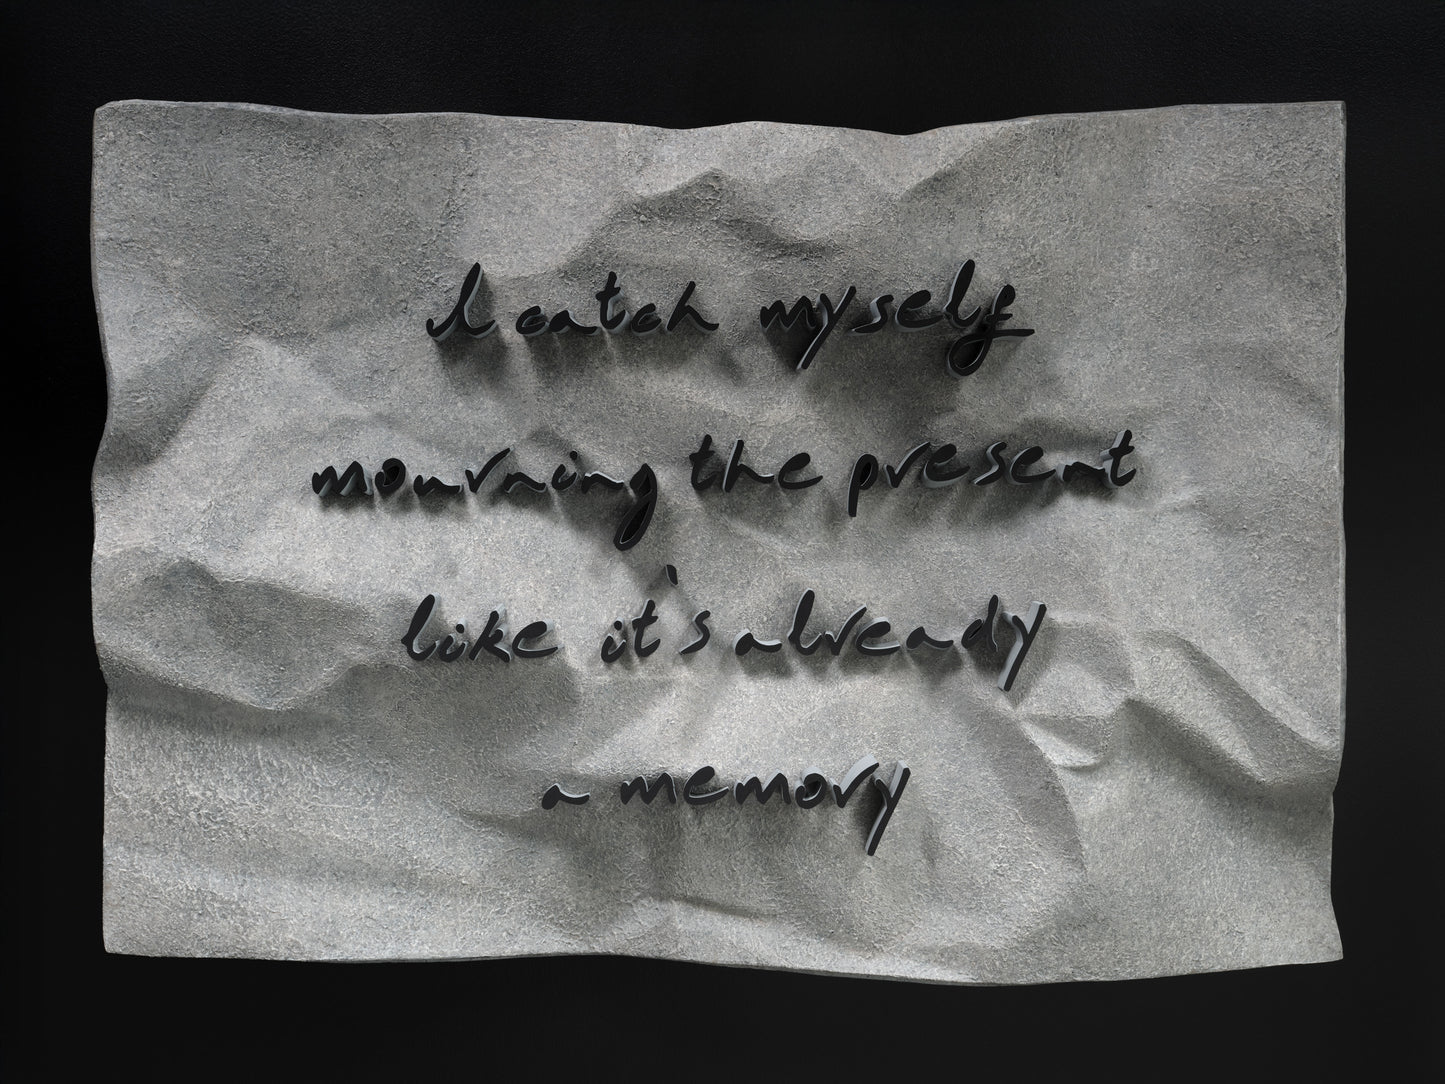 I catch myself
mourning the present
like it's already
a memory